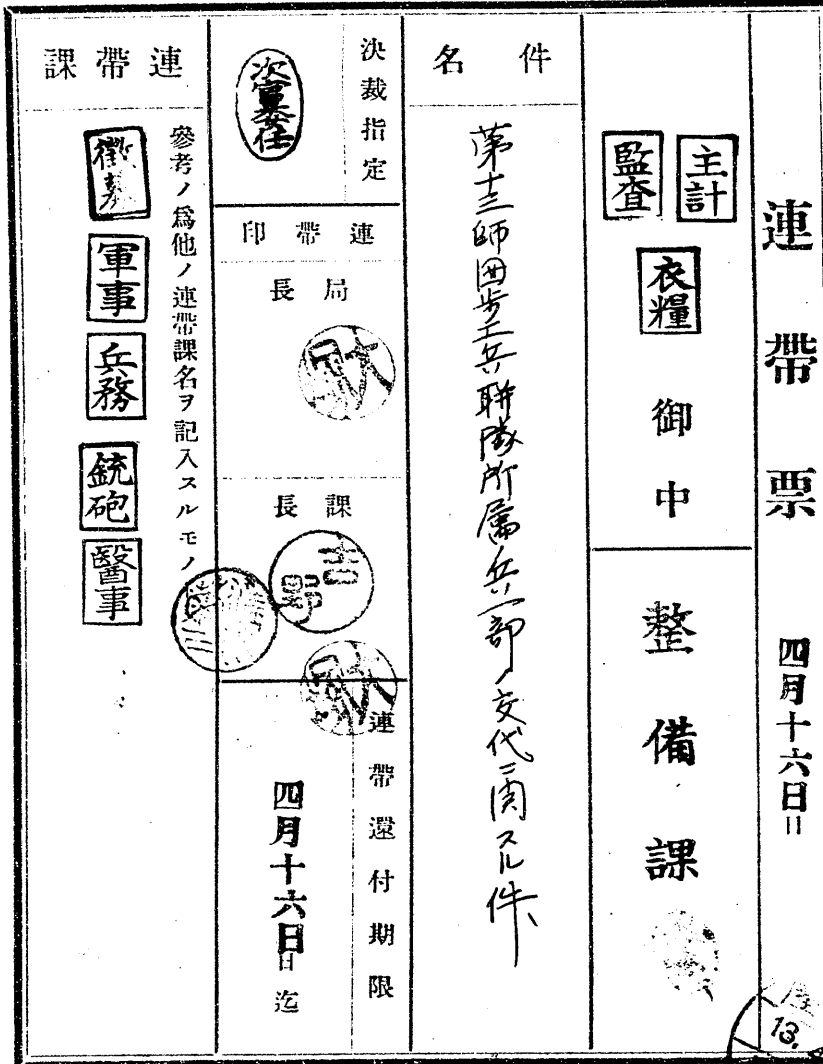 連帶票
四月十六日日
主計
監査
衣糧
御中
整備課
件名
第十三師団歩工兵聯隊所属兵一部ノ交代ニ関スル件
決裁指定
次官委任
連帶印
局長
課長
吉野
連帶還付期限
四月十六日日迄
連帶課
參考ノ爲他ノ連帶課名ヲ記入スルモノ
徴募
軍事
兵務
銃砲
醫事
13.